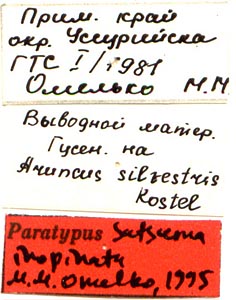 Прим. край
окр. Уссурийска
ГТС I/1981
Омелько М.М.
Выводной матер.
Гусен. на
Aruncus silvestris
Kostel
Paratypus Satsuma
inopinata
M.M. Omelko, 1995